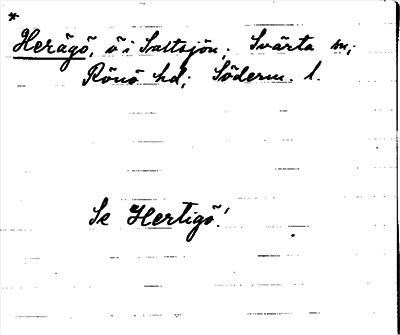 *
Herägö, ö i Saltsjön; Svärta sn;
Rönö hd; Söderm. l.
Se Hertigö!